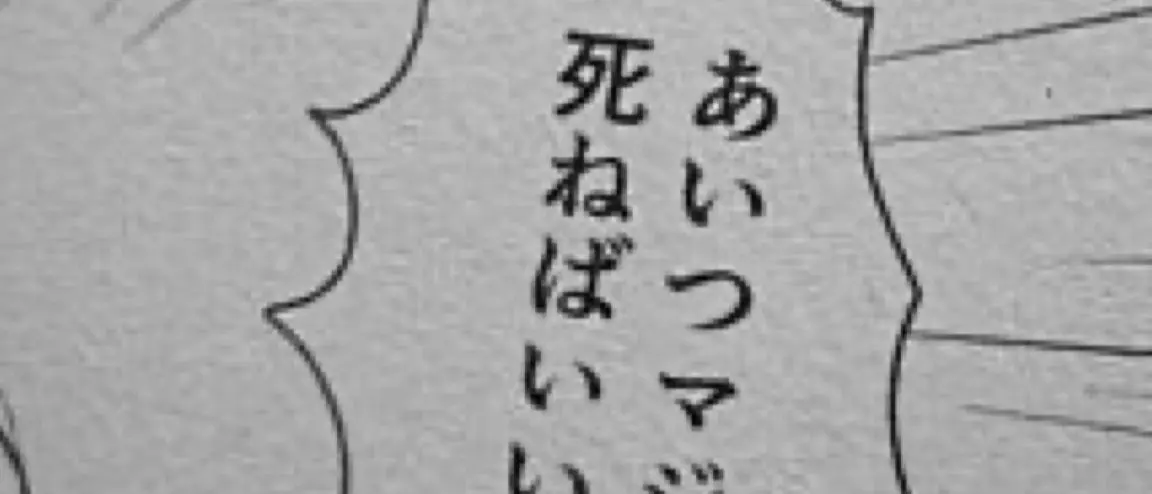 あいつマジ
死ねばいい